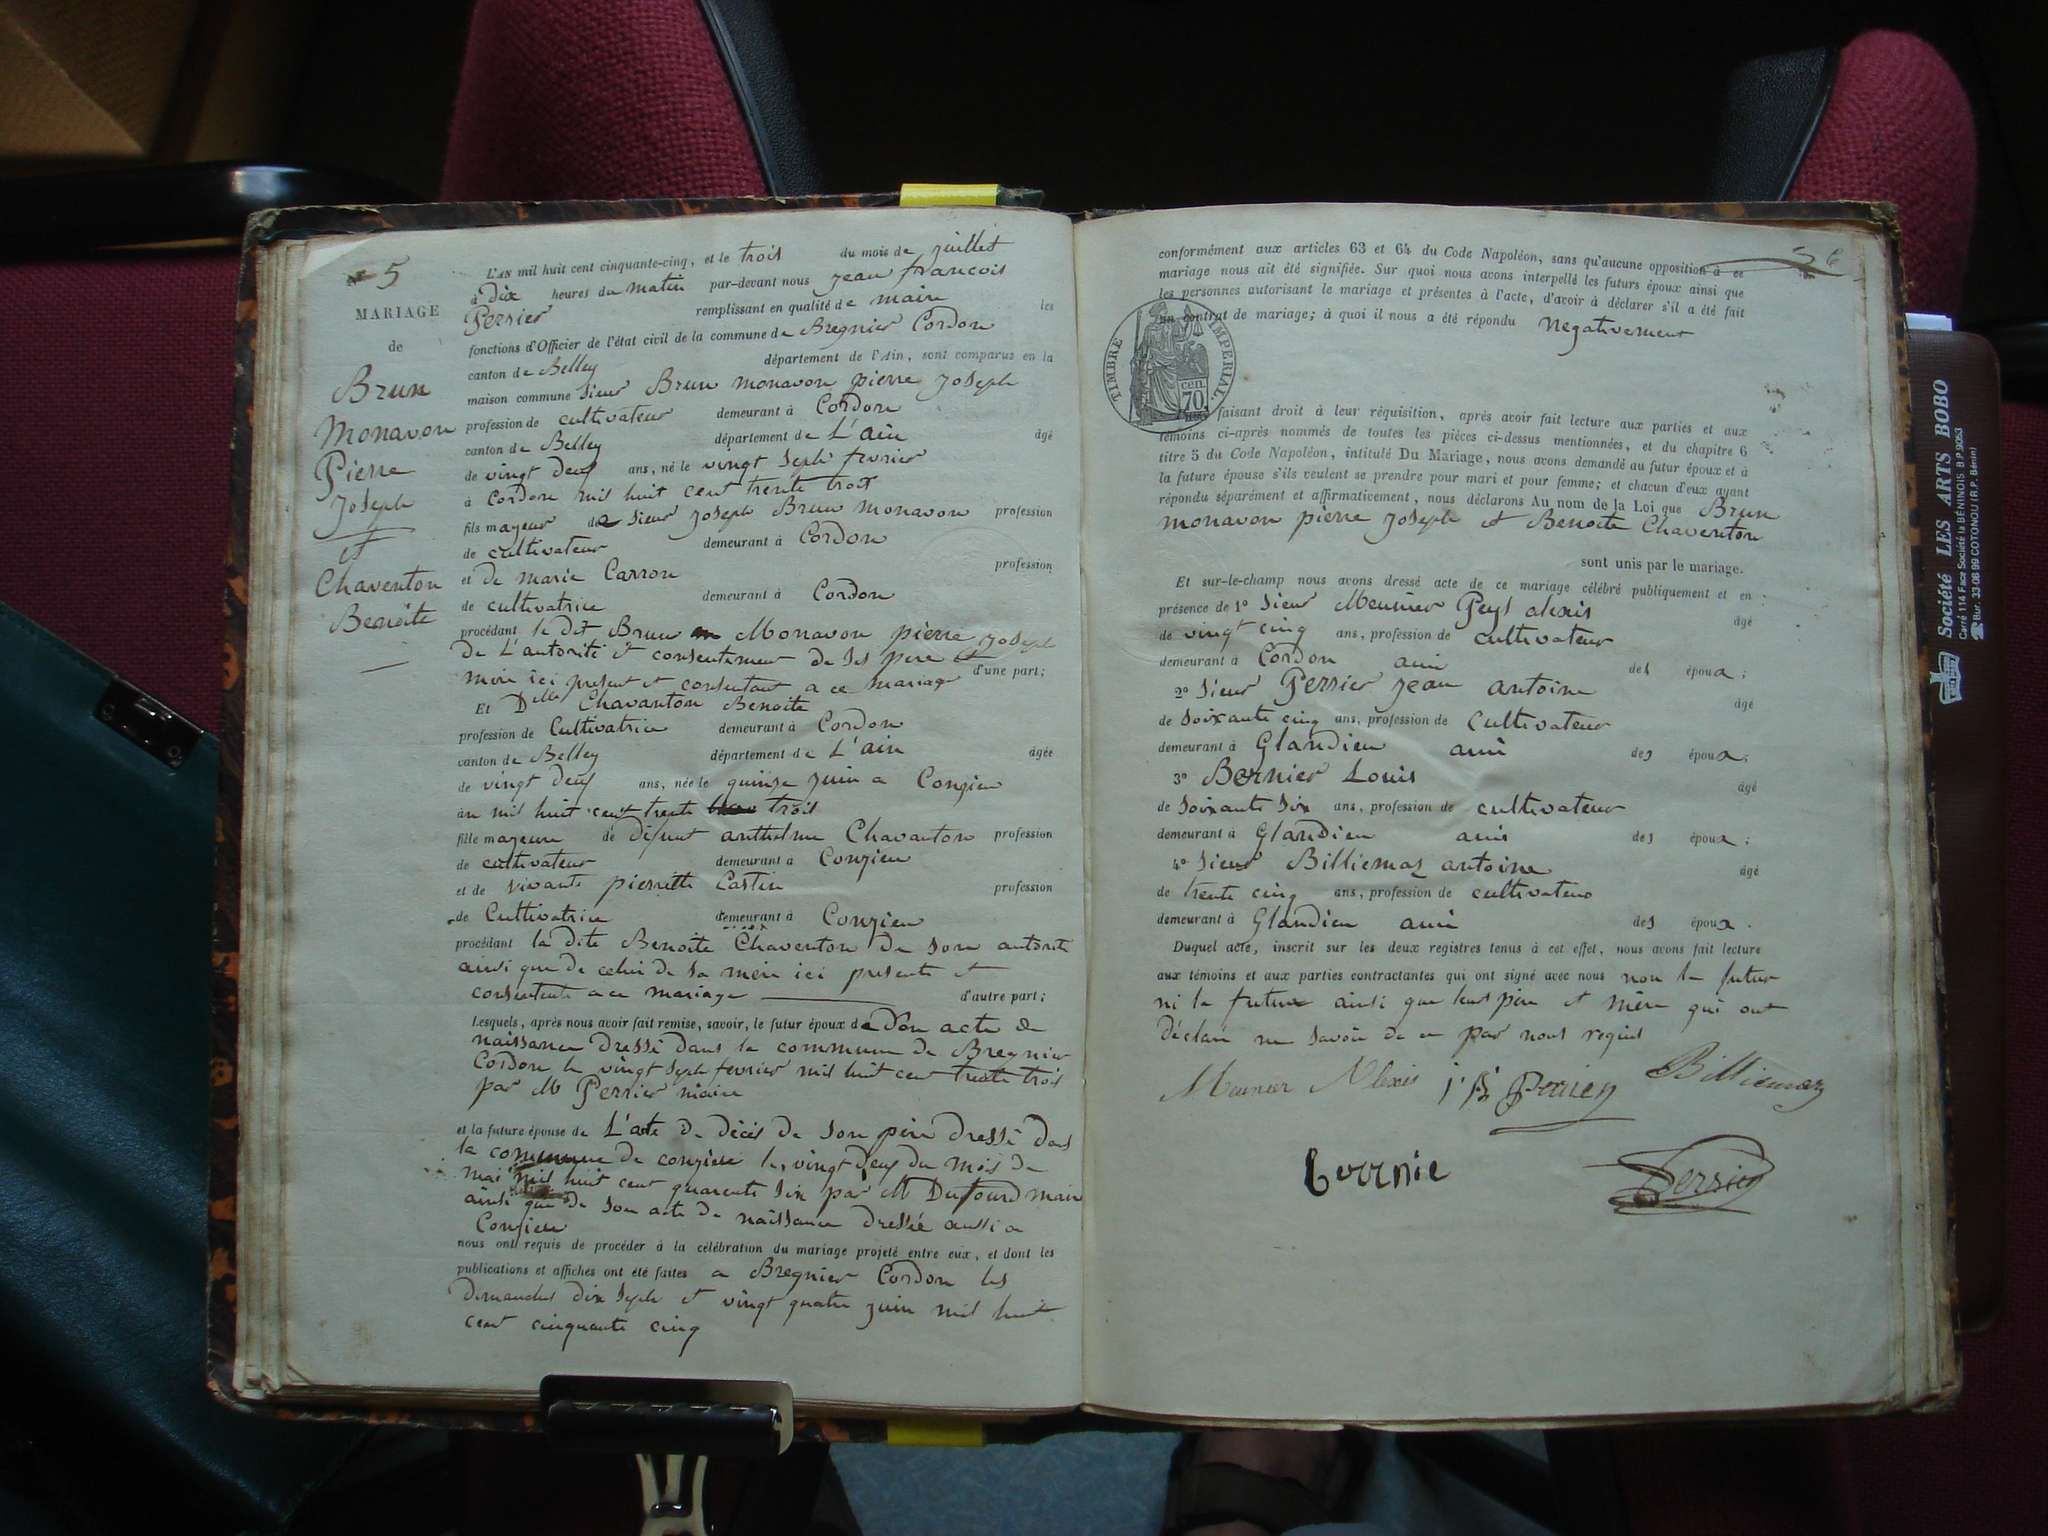 N° 5
MARIAGE
de
Brun
Monavon
Pierre
Joseph
et
Chaventon
Benoite
L'AN mil huit cent cinquante-cinq, et le trois du mois de juillet
à dix heures du matin par-devant nous jean francois
Perrier remplissant en qualité de maire les
fonctions d'Officier de l'état civil de la commune de Bregnier Cordon
canton de Belley département de l'Ain, sont comparus en la
maison commune sieur Brun monavon pierre joseph
profession de cultivateur demeurant à Cordon
canton de Belley département de L'ain âgé
de vingt deux ans, né le vingt sept fevrier
à Cordon mil huit cent trente trois
fils majeur de sieur joseph Brun monavon profession
de cultivateur demeurant à Cordon
et de marie Carron profession
de cultivatrice demeurant à Cordon
procédant le dit Brun Monavon pierre joseph
de L'autorité et consentement de ses pere et
mère ici present et consentant a ce mariage d'une part;
Et Dlle Chavanton Benoite
profession de Cultivatrice demeurant à Cordon
canton de Belley département de L'ain âgée
de vingt deux ans, née le quinze juin a Conzieu
an mil huit cent trente trois
fille majeure de défunt anthelme Chavanton profession
de cultivateur demeurant à Conzieu
et de vivante pierrette Castin profession
de Cultivatrice demeurant à Conzieu
procédant la dite Benoite Chaventon de son autorité
ainsi que de celui de sa mère ici presente et
consentente a ce mariage d'autre part;
Lesquels, après nous avoir fait remise, savoir, le futur époux de son acte de
naissance dressé dans la commune de Bregnier
Cordon le vingt sept fevrier mil huit cent trente trois
par M Perrier maire
et la future épouse de L'acte de décès de son père dressé dans
la commune de conzieu le vingt deux du mois de
mai mil huit cent quarente six par M Dufourd maire
ainsi que de son acte de naissance dressée aussi a
Conzieu
nous ont requis de procéder à la célébration du mariage projeté entre eux, et dont les
publications et affiches ont été faites a Bregnier Cordon les
Dimanches dix sept et vingt quatre juin mil huit
cent cinquante cinq
conformément aux articles 63 et 64 du Code Napoléon, sans qu'aucune opposition à ce
mariage nous ait été signifiée. Sur quoi nous avons interpellé les futurs époux ainsi que
les personnes autorisant le mariage et présentes à l'acte, d'avoir à déclarer s'il a été fait
un contrat de mariage; à quoi il nous a été répondu negativement
TIMBRE IMPÉRIAL
70 cen.
faisant droit à leur réquisition, après avoir fait lecture aux parties et aux
témoins ci-après nommés de toutes les pièces ci-dessus mentionnées, et du chapitre 6
titre 5 du Code Napoléon, intitulé Du Mariage, nous avons demandé au futur époux et à
la future épouse s'ils veulent se prendre pour mari et pour femme; et chacun d'eux ayant
répondu séparément et affirmativement, nous déclarons Au nom de la Loi que Brun
monavon pierre joseph et Benoite Chaventon
sont unis par le mariage.
Et sur-le-champ nous avons dressé acte de ce mariage célébré publiquement et en
présence de 1° sieur Meunier alexis âgé
de vingt cinq ans, profession de cultivateur
demeurant à Cordon ami des époux;
2° sieur Perrier jean antoine âgé
de soixante cinq ans, profession de cultivateur
demeurant à Glandieu ami des époux;
3° Bernier Louis âgé
de soixante six ans, profession de cultivateur
demeurant à Glandieu ami des époux;
4° sieur Billiemaz antoine âgé
de trente cinq ans, profession de cultivateur
demeurant à Glandieu ami des époux.
Duquel acte, inscrit sur les deux registres tenus à cet effet, nous avons fait lecture
aux témoins et aux parties contractantes qui ont signé avec nous non le futur
ni la future ainsi que leurs père et mère qui ont
déclaré ne savoir de ce par nous requis
Meunier Alexis Billiemaz
Perrier
Société LES ARTS BOBO
Carré 114 Face Société la BÉNINOIS B.P.9053
☎ Bur. 33-06 99 COTONOU (R.P. Bénin)